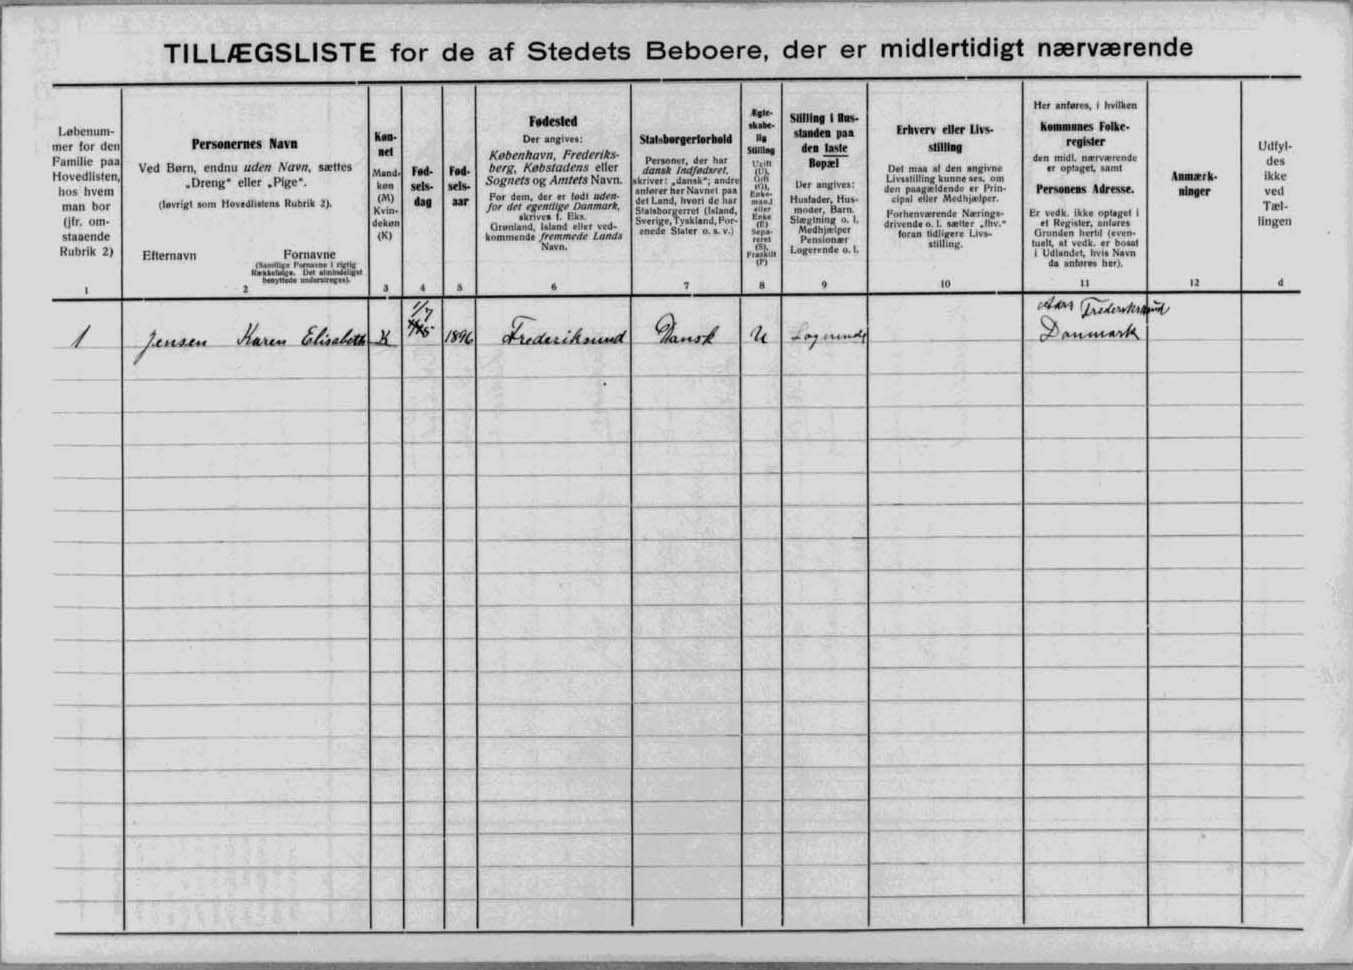 TILLÆGSLISTE for de af Stedets Beboere, der er midlertidigt nærværende
Løbenum-
mer for den
Familie paa
Hovedlisten,
hos hvem
man bor
(jfr. om-
staaende
Rubrik 2)
1
Personernes Navn
Ved Børn, endnu uden Navn, sættes
„Dreng“ eller „Pige“.
(Iøvrigt som Hovedlistens Rubrik 2).
Efternavn Fornavne
(Samtlige Fornavne i rigtig
Rækkefølge. Det almindeligst
benyttede understreges).
2
Køn-
net
Mand-
køn
(M)
Kvin-
dekøn
(K)
3
Fød-
sels-
dag
4
Fød-
sels-
aar
5
Fødested
Der angives:
København, Frederiks-
berg, Købstadens eller
Sognets og Amtets Navn.
For dem, der er født uden-
for det egentlige Danmark,
skrives f. Eks.
Grønland, Island eller ved-
kommende fremmede Lands
Navn.
6
Statsborgerforhold
Personer, der har
dansk Indfødsret,
skriver: „dansk“; andre
anfører her Navnet paa
det Land, hvori de har
Statsborgerret (Island,
Sverige, Tyskland, For-
enede Stater o. s. v.)
7
Ægte-
skabe-
lig
Stilling
Ugift
(U),
Gift
(G),
Enke-
mand
eller
Enke
(E)
Sepa-
reret
(S),
Fraskilt
(F)
8
Stilling i Hus-
standen paa
den faste
Bopæl
Der angives:
Husfader, Hus-
moder, Barn,
Slægtning o. l.
Medhjælper
Pensionær
Logerende o. l.
9
Erhverv eller Livs-
stilling
Det maa af den angivne
Livsstilling kunne ses, om
den paagældende er Prin-
cipal eller Medhjælper.
Forhenværende Nærings-
drivende o. l. sætter „fhv.“
foran tidligere Livs-
stilling.
10
Her anføres, i hvilken
Kommunes Folke-
register
den midl. nærværende
er optaget, samt
Personens Adresse.
Er vedk. ikke optaget i
et Register, anføres
Grunden hertil (even-
tuelt, at vedk. er bosat
i Udlandet, hvis Navn
da anføres her).
11
Anmærk-
ninger
12
Udfyl-
des
ikke
ved
Tæl-
lingen
d
1 Jensen Karen Elisabeth K 1/7 1896 Frederiksund Dansk U Logerende Frederiksund
Danmark